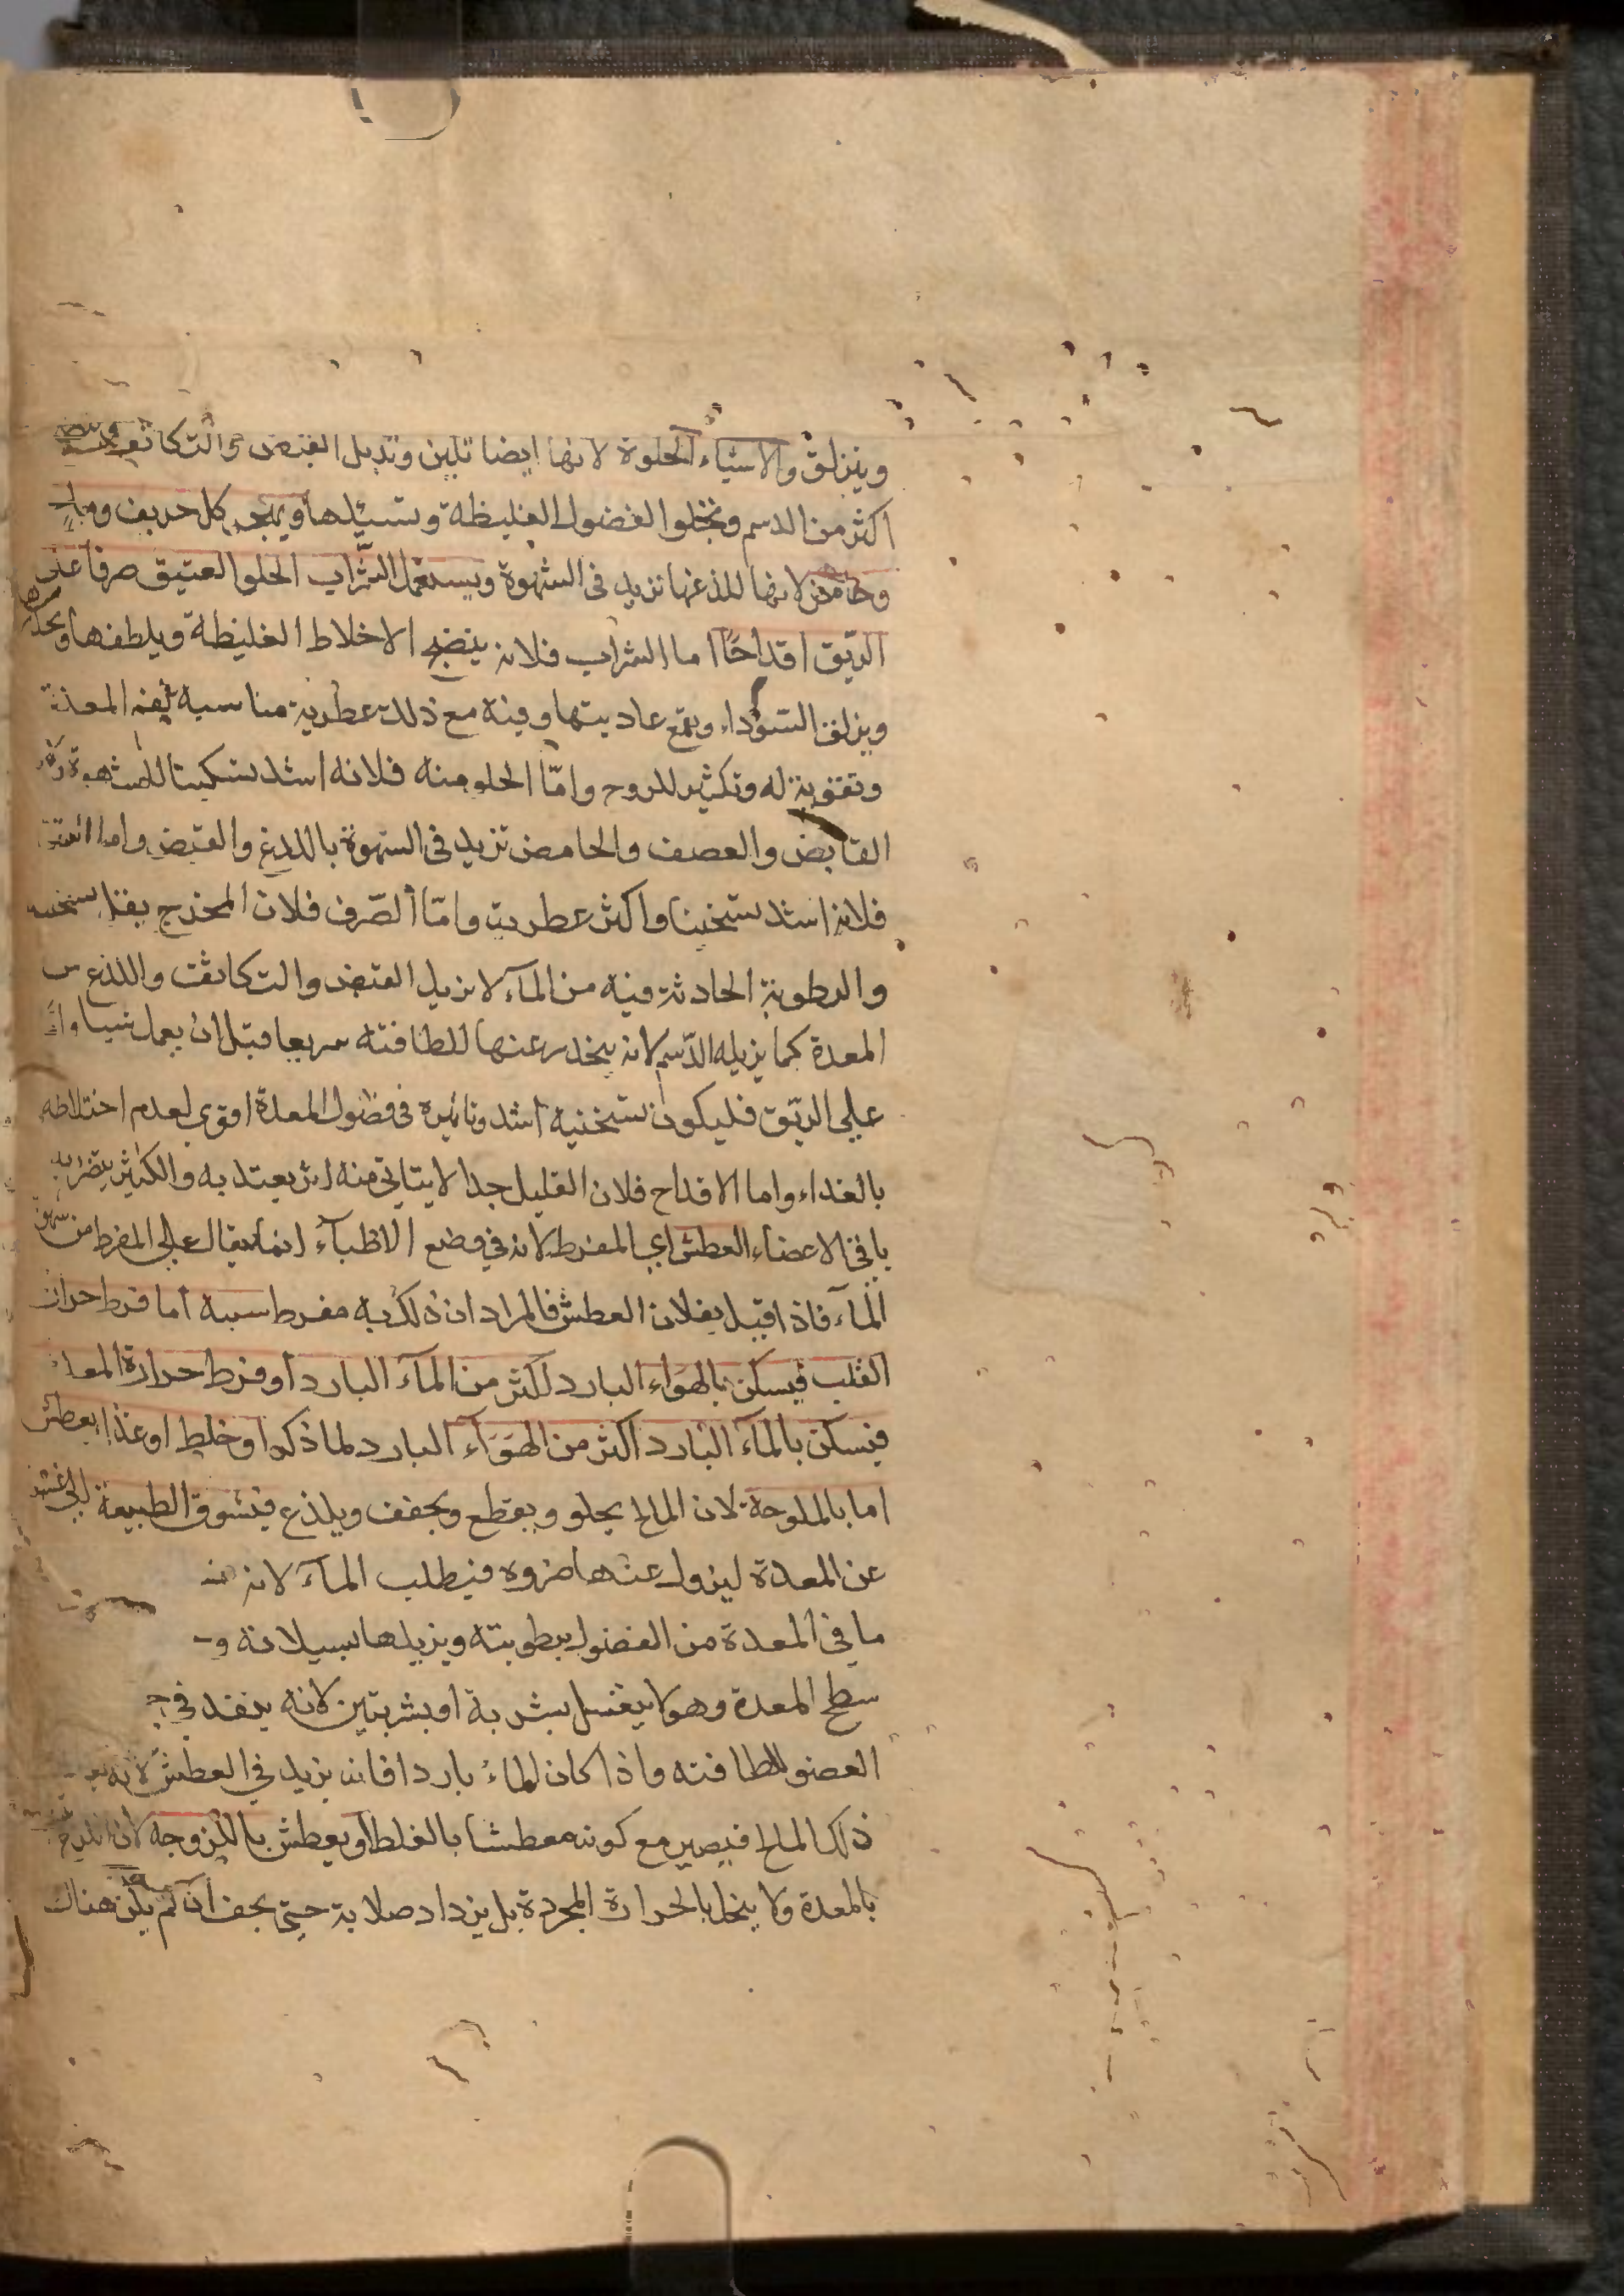 وينزلق والاشياء الحلوة لانها ايضا تلين وتديل القبض والتكاثف
اكثر من الدسم وتجلوا الفضول الغليظة وتسيلها ويهجر كل حريف ومالح
وحامض لانها للذعها تزيد في الشهوة ويستعمل الشراب الحلو العتيق صرفا على
الريق اقداحًا اما الشراب فلانه ينضج الاخلاط الغليظة ويلطفها ويحدرها
ويزلق السوداء ويقمع عاديتها وفيه مع ذلك عطرية مناسبة لفم المعدة
وتقوية له وتكثير للروح وامّا الحلو منه فلانه اشد تسكينا للشهوة
القابض والعصف والحامض تزيد في الشهوة باللذع والقبض واما العتيق
فلانه اشد تسخينا واكثر عطرية وامّا الصّرف فلان الممزج يقل تسخينه
والرطوبة الحادثة فيه من المآء لا تزيل القبض والتكاثف واللذع من
المعدة كما يزيله الدّسم لانه ينحدر عنها للطافته سريعا قبل ان يعمل شيا واما
على الريّق فليكون تسخنيه اشد وتاثيره في فضول المعدة اقوي لعدم اختلاطه
بالغداء واما الاقداح فلان القليل جدا لا يتاتى منه اثر يعتد به والكثير يتضر به
باقي الاعضاء العطش اي المفرط لانه في وضع الاطباء انما يقال على المفرط من شهوة
المآء فاذا قيل بفلان العطش فالمراد ان ذلك به مفرط سببه اما فرط حرارة
القلب فيسكن بالهواء البارد اكثر من المآء البارد او فرط حرارة المعدة
فيسكن بالمآء البارد اكثر من الهوآء البارد لما ذكر او خلط او غذا يعطش
اما بالملوحة لان المالح يجلو ويقطع ويجفف ويلذع فيتشوق الطبيعة الى غسله
عن المعدة ليزول عنها ضروه فيطلب المآء لانه
ما في المعدة من الفضول برطوبته ويزيلها بسيلانه و
سطح المعدة وهو لا يغسل بشربة او بشربتين لانه ينفذ في
العضو للطافته واذا كان الماء باردا فانه يزيد في العطش لانه
ذلك المالح فيصير مع كونه معطشا بالغلظ او يعطش باللزوجه لان اللزج
بالمعدة ولا ينحل بالحرارة المجردة بل يزداد صلابة حتى يجف ان لم يكن هناك